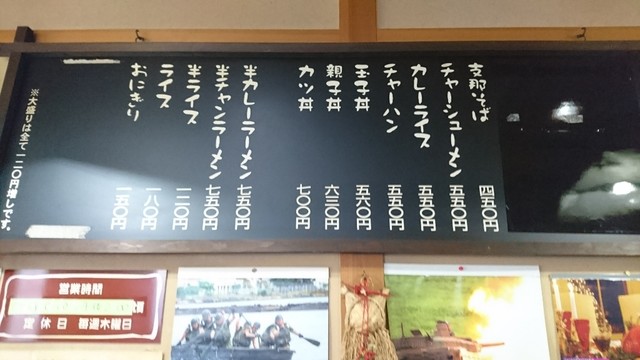 支那そば 四五〇円
チャーシューメン 五五〇円
カレーライス 五五〇円
チャーハン 五五〇円
玉子丼 五六〇円
親子丼 六三〇円
カツ丼 七〇〇円
半カレーラーメン 七五〇円
半チャンラーメン 七五〇円
半ライス 一二〇円
ライス 一八〇円
おにぎり 一五〇円
※大盛りは全て一二〇円増しです。
営業時間
定休日 毎週木曜日